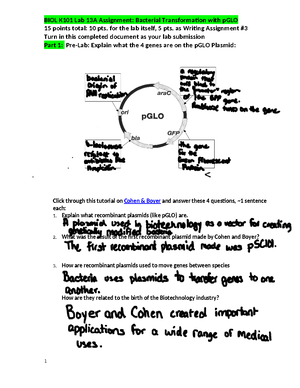 BIOL K101 Lab 13A Assignment: Bacterial Transformation with pGLO
15 points total: 10 pts. for the lab itself, 5 pts. as Writing Assignment #3
Turn in this completed document as your lab submission
Part 1: Pre-Lab: Explain what the 4 genes are on the pGLO Plasmid:
bacterial
Origin of
a regulatory
that will
bind to the
of the GFP gene.
gene
araC
ori
pGLO
GFP
bla
the gene
for the
Green Fluorescent
Protein
Click through this tutorial on Cohen & Boyer and answer these 4 questions, ~1 sentence
each:
1. Explain what recombinant plasmids (like pGLO) are.
A plasmid used in biotechnology as a vector for creating
genetically modified
2. What was the result of the first recombinant plasmid made by Cohen and Boyer?
The first recombinant plasmid made was pSC101.
3. How are recombinant plasmids used to move genes between species
Bacteria uses plasmids to transfer genes to one
another.
How are they related to the birth of the Biotechnology industry?
Boyer and Cohen created important
applications for a wide range of medical
uses.
1